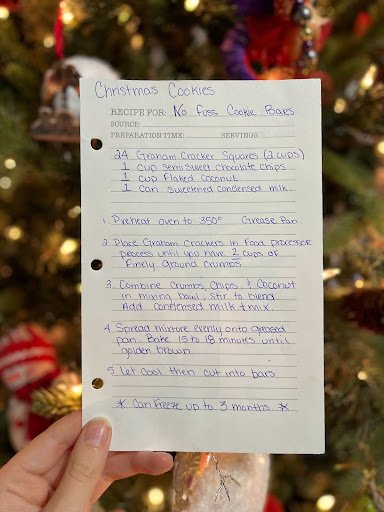 Christmas Cookies
RECIPE FOR: No Fuss Cookie Bars
SOURCE:
PREPARATION TIME: SERVINGS:
24 Graham Cracker Squares (2 cups)
1 cup semisweet chocolate chips
1 cup Flaked Coconut
1 can sweetened condensed milk
1. Preheat oven to 350° Grease Pan
2. Place Graham Crackers in Food processor
process until you have 2 cups of
Finely ground crumbs
3. Combine Crumbs, Chips, & Coconut
in mixing bowl, stir to blend
Add condensed milk & mix.
4. Spread mixture evenly onto greased
pan. Bake 15 to 18 minutes until
golden brown.
5. Let cool then cut into bars
* Can Freeze up to 3 months *